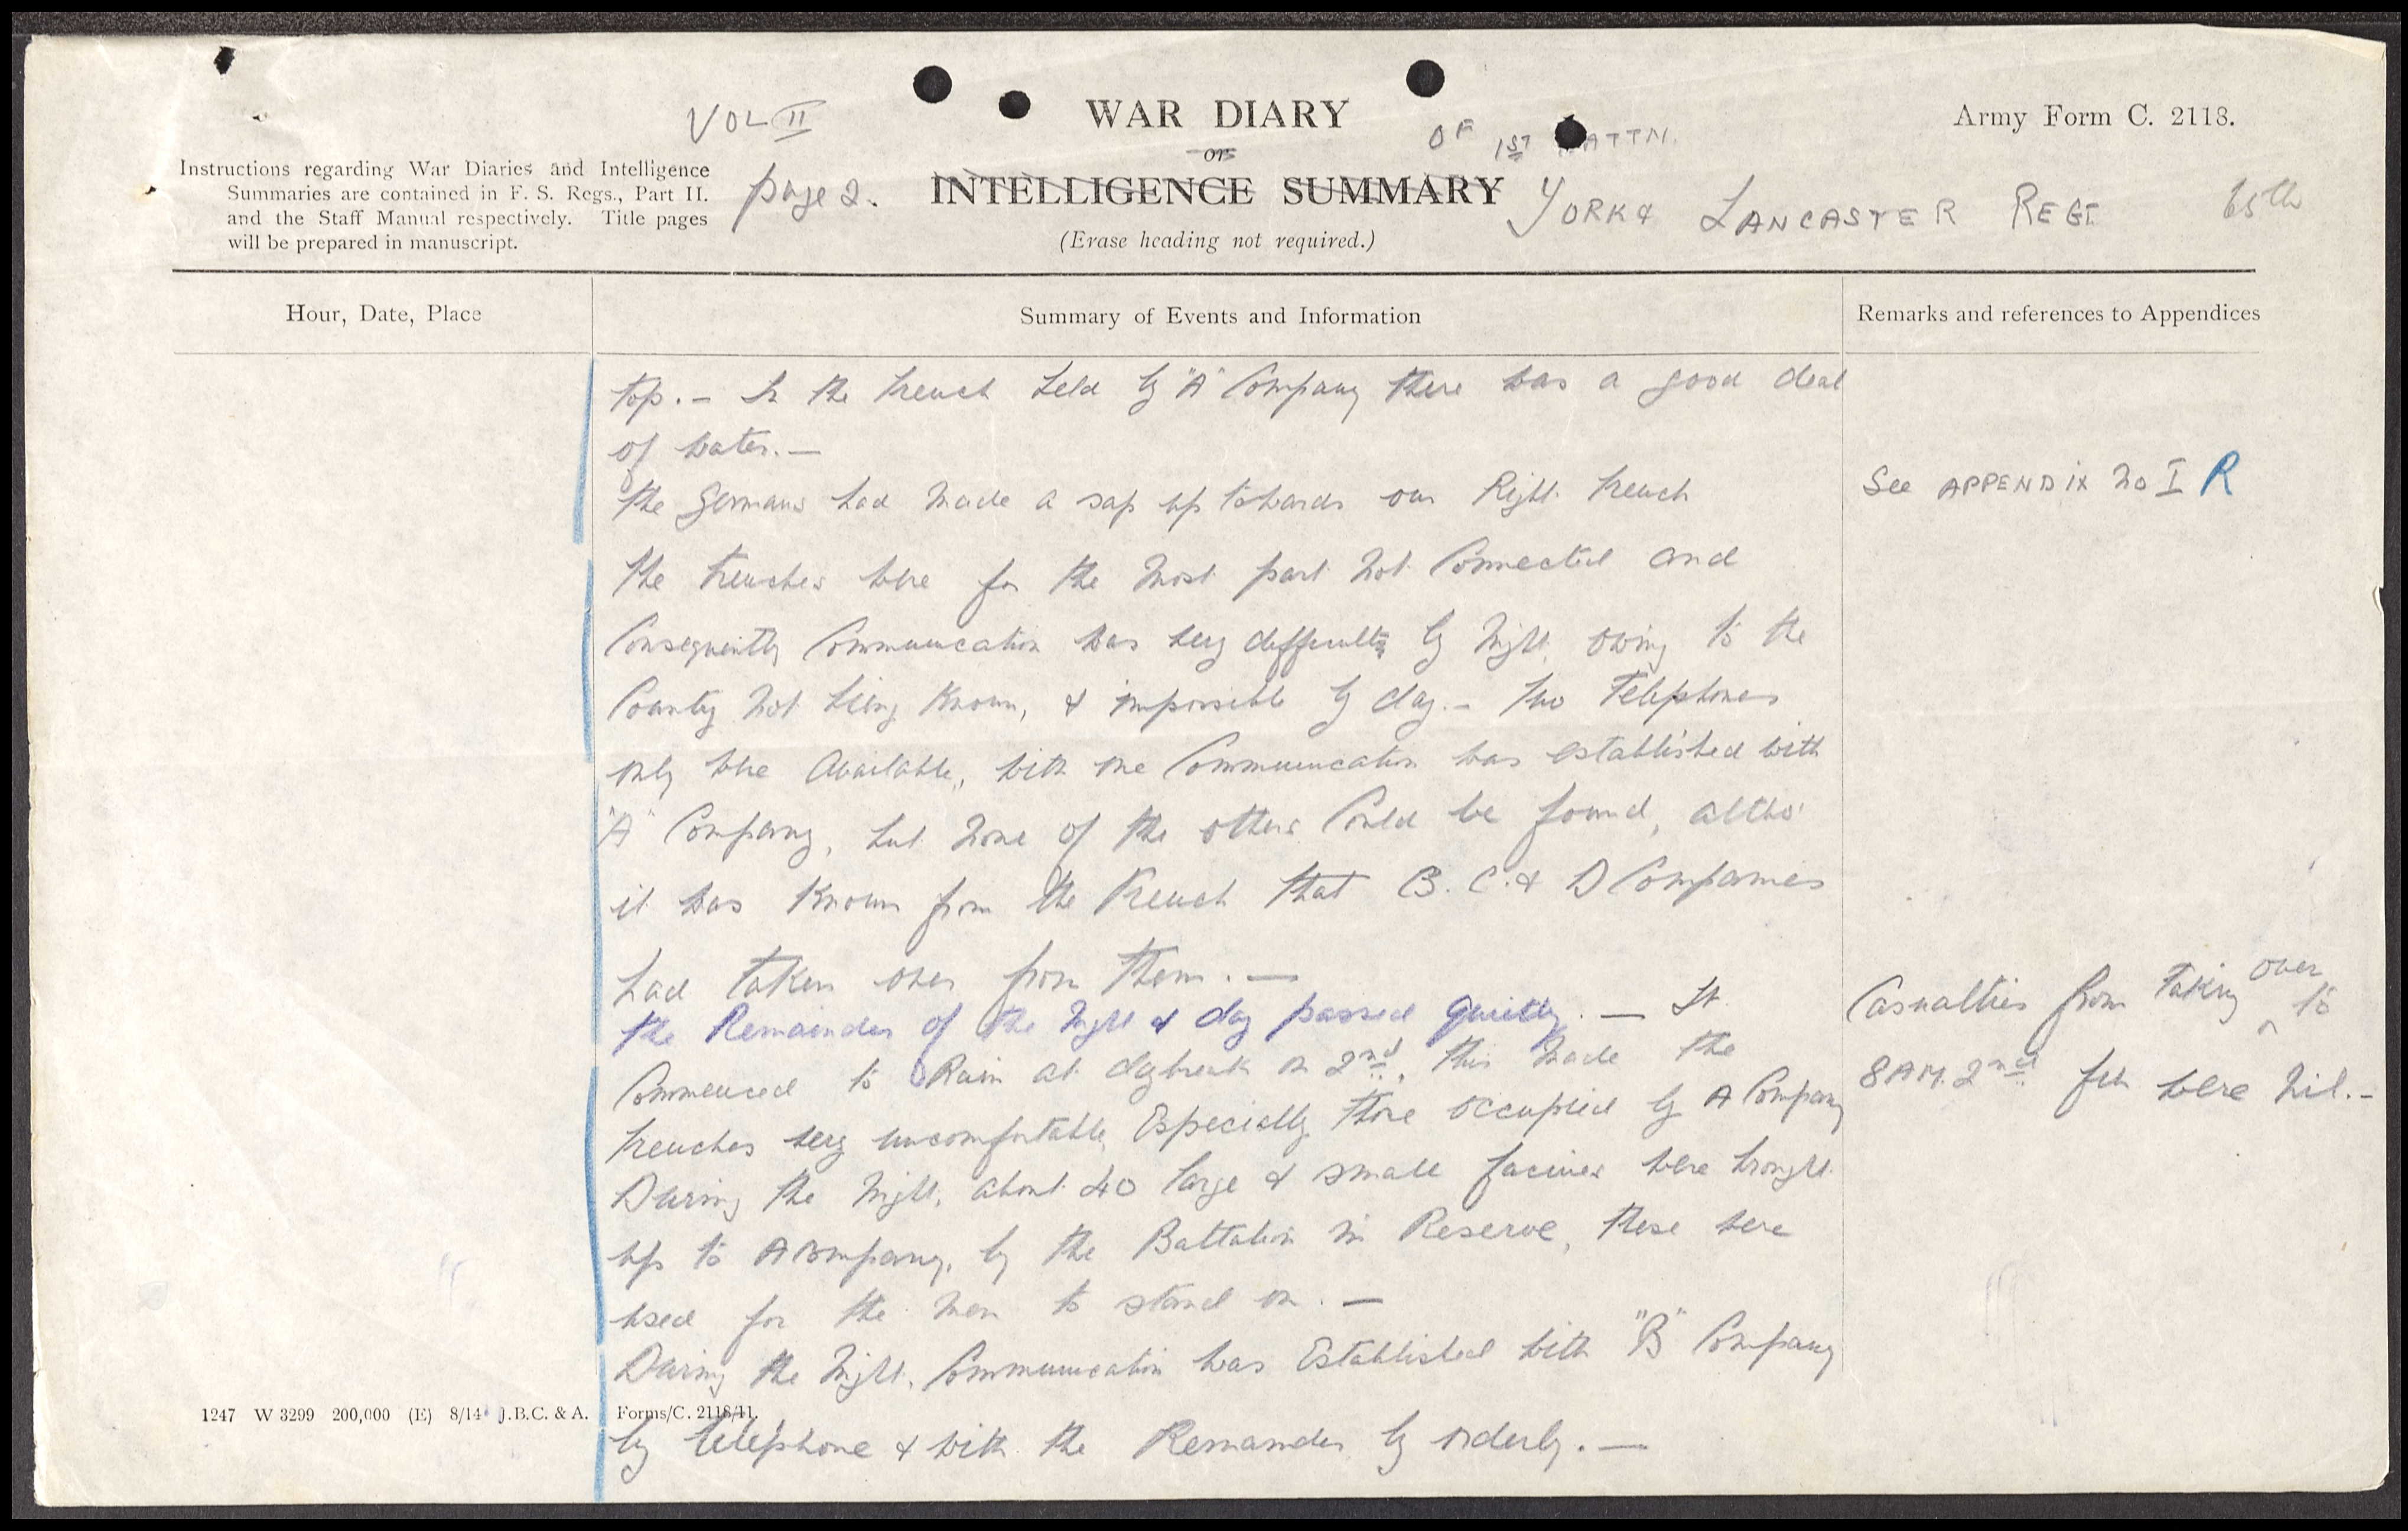 VOL II
WAR DIARY
OF 1ST BATTN.
Army Form C. 2118.
or
Instructions regarding War Diaries and Intelligence
Summaries are contained in F. S. Regs., Part II.
and the Staff Manual respectively. Title pages
will be prepared in manuscript.
page 2.
INTELLIGENCE SUMMARY
YORK & LANCASTER REGT
65th
(Erase heading not required.)
Hour, Date, Place
Summary of Events and Information
Remarks and references to Appendices
top. — In the trench held by "A" Company there was a good deal
of water. —
The Germans had made a sap up towards our Right trench
See APPENDIX No I R
The trenches were for the most part not connected and
Consequently Communication was very difficult by night owing to the
Country not being known, & impossible by day. — Two Telephones
only were available, with one Communication was established with
"A" Company, but none of the others could be found, altho'
it was known from the French that B. C. & D Companies
had taken over from them. —
The Remainder of the night & day passed quietly. — It
Commenced to Rain at daybreak on 2nd, this made the
trenches very uncomfortable, Especially those occupied by A Company
Casualties from taking over to
8 AM. 2nd Feb were nil. —
During the night, about 40 large & small facines were brought
up to A Company, by the Battalion in Reserve, these were
used for the men to stand on. —
During the night, Communication was Established with "B" Company
1247 W 3299 200,000 (E) 8/14 J.B.C. & A. Forms/C. 2118/11.
by telephone & with the Remainder by orderly. —